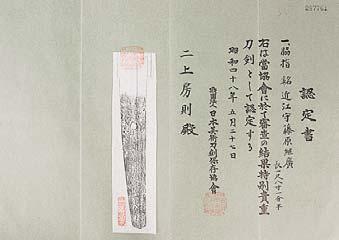 207761
認定書
一、脇指 銘 近江守藤原継廣
長一尺八寸一分半
右は當協會に於て審査の結果特別貴重
刀剣として認定する
昭和四十八年 五月二十七日
財團法人日本美術刀剣保存協會
二上房則殿